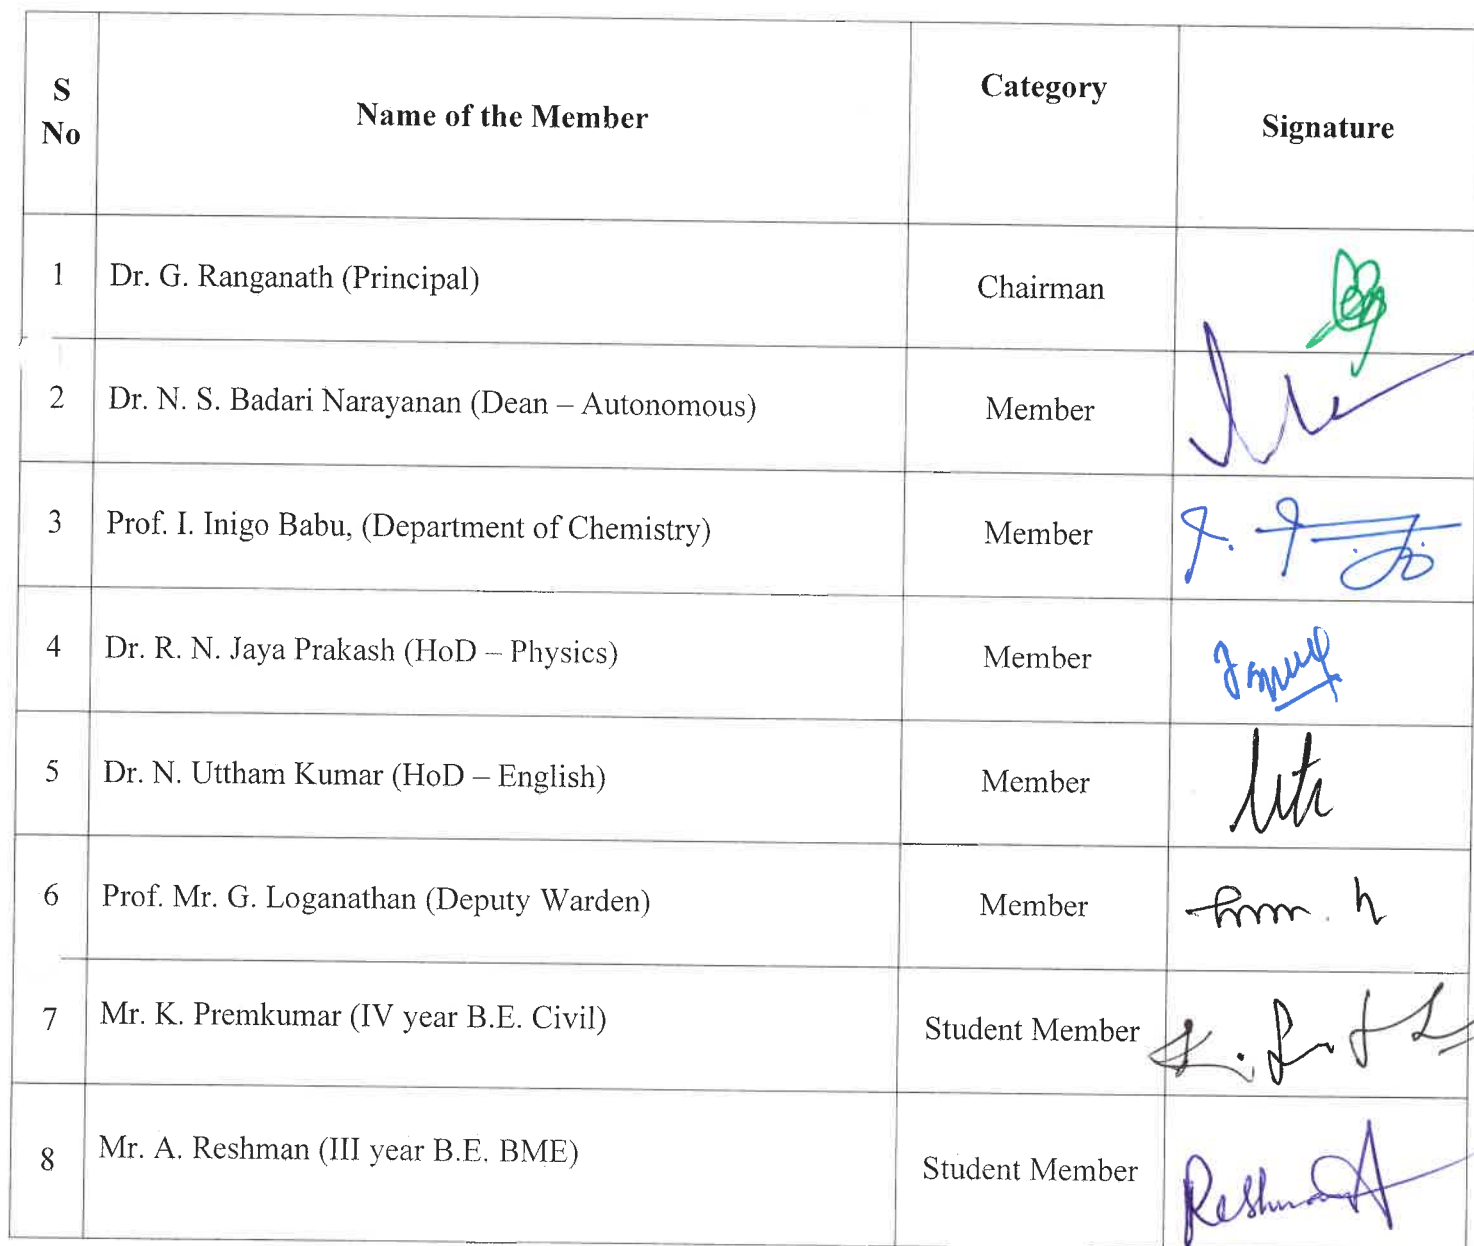 S No Name of the Member Category Signature
1 Dr. G. Ranganath (Principal) Chairman
2 Dr. N. S. Badari Narayanan (Dean – Autonomous) Member
3 Prof. I. Inigo Babu, (Department of Chemistry) Member
4 Dr. R. N. Jaya Prakash (HoD – Physics) Member
5 Dr. N. Uttham Kumar (HoD – English) Member
6 Prof. Mr. G. Loganathan (Deputy Warden) Member
7 Mr. K. Premkumar (IV year B.E. Civil) Student Member
8 Mr. A. Reshman (III year B.E. BME) Student Member